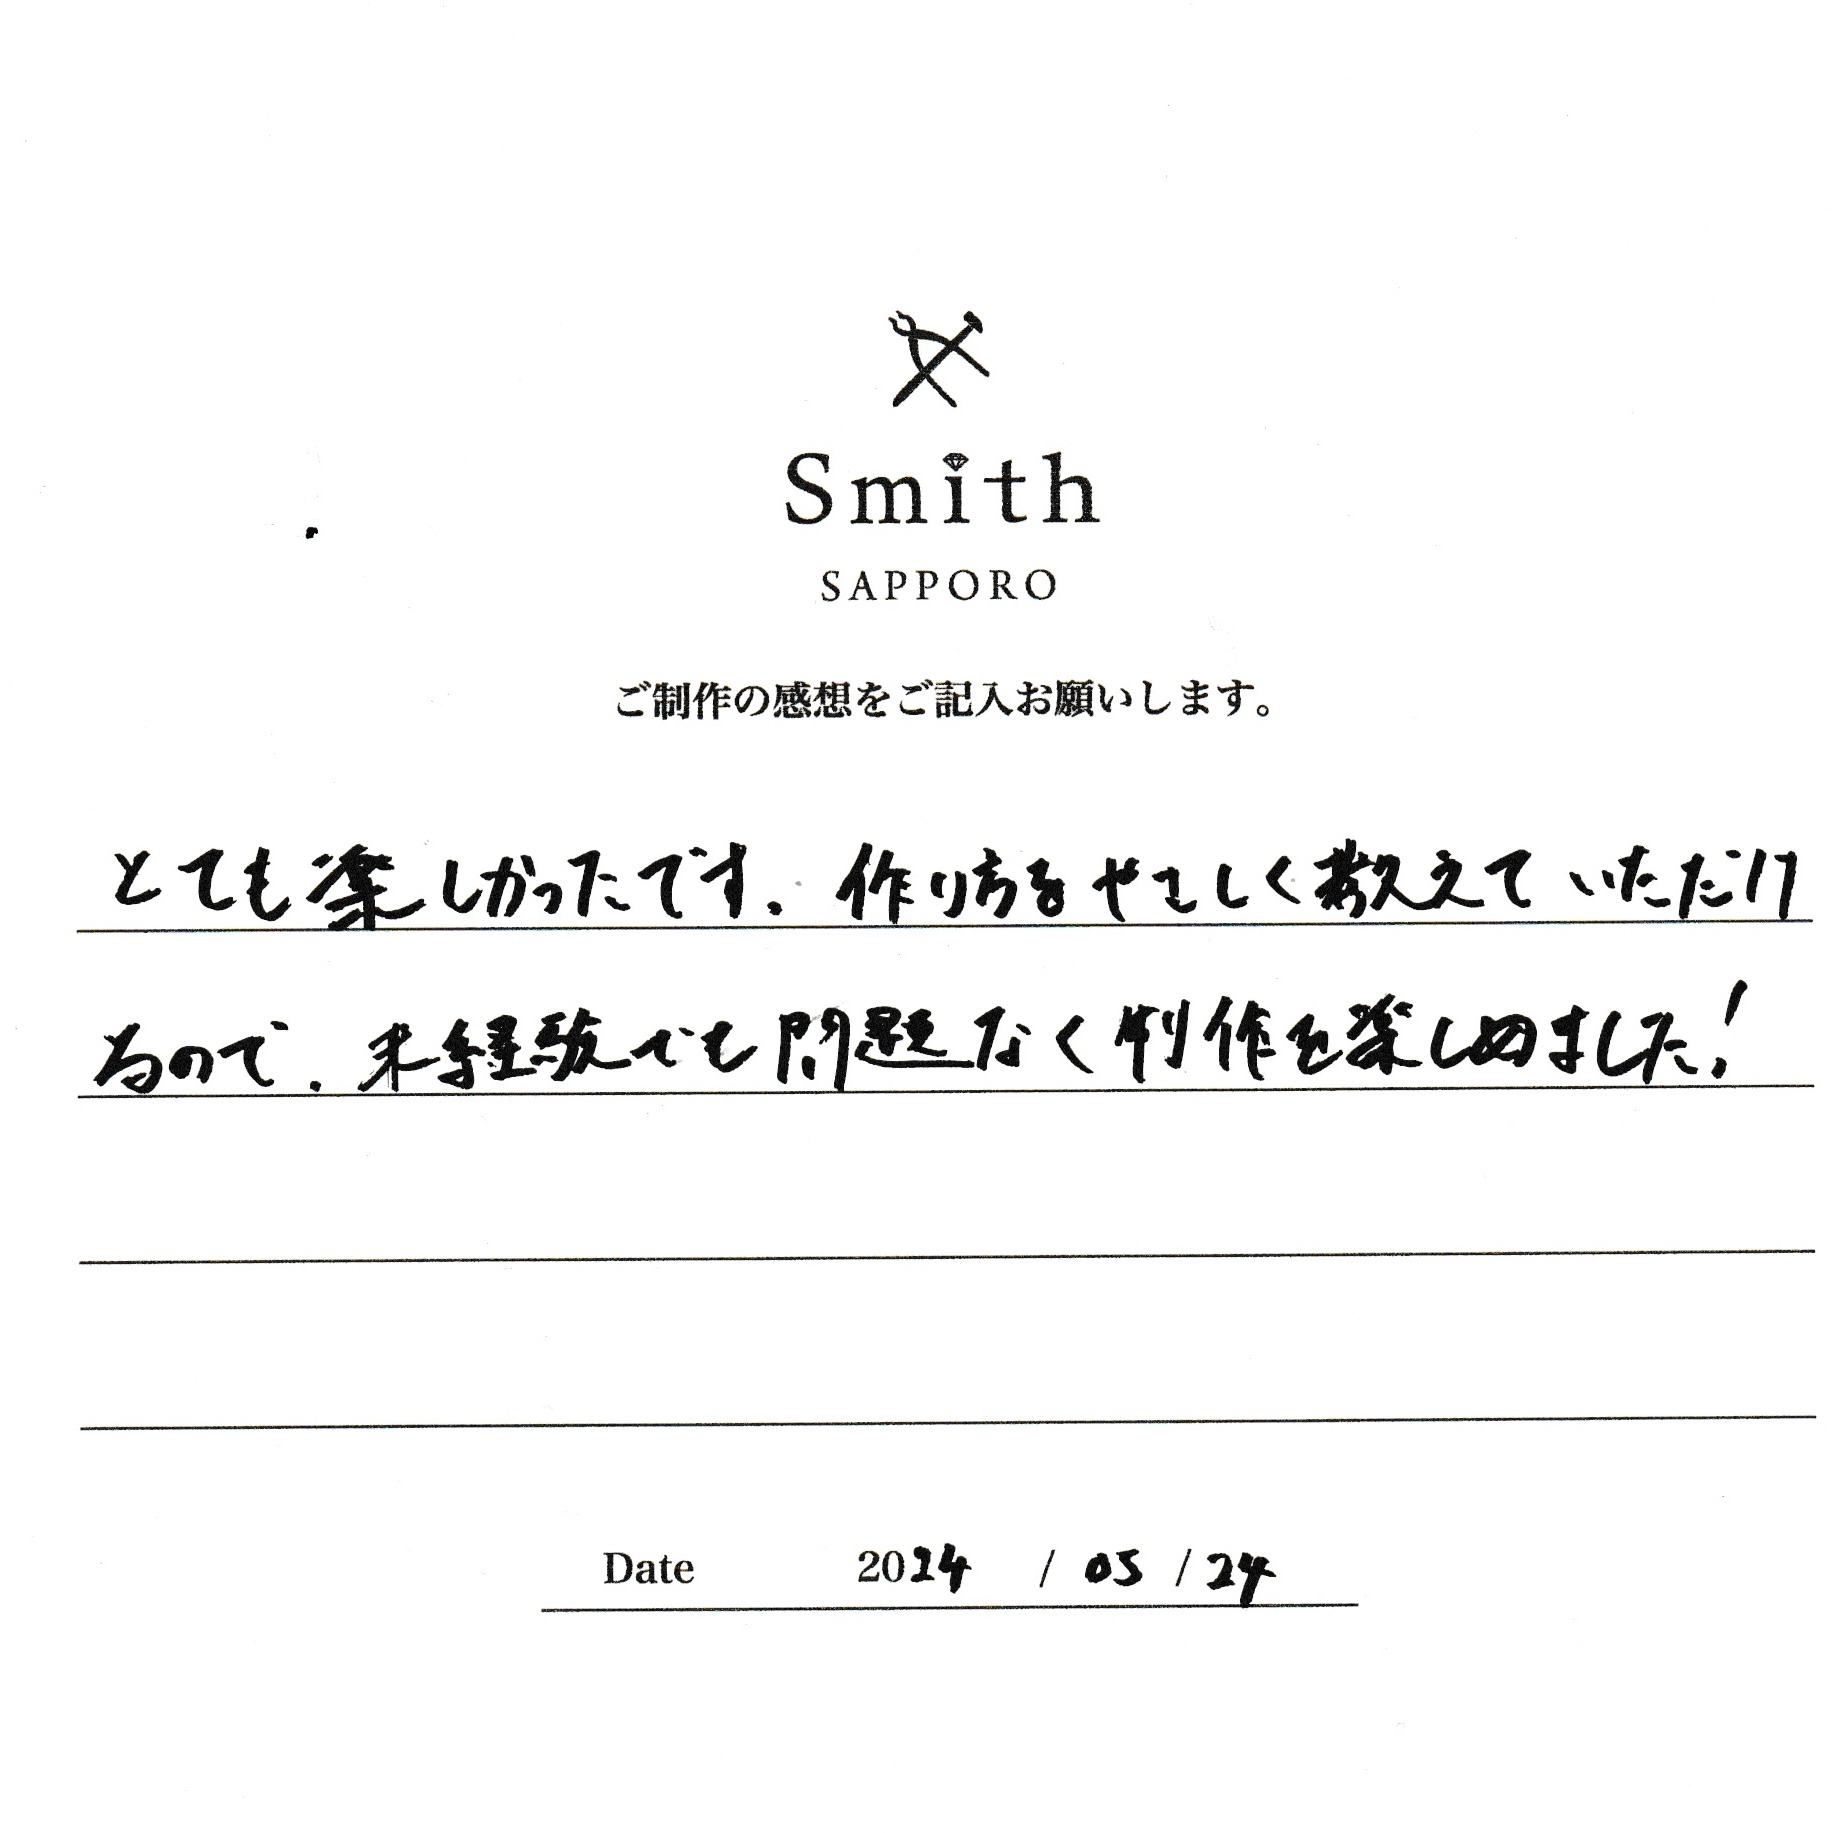 Smith
SAPPORO
ご制作の感想をご記入お願いします。
とても楽しかったです。作り方をやさしく教えていただけ
るので、未経験でも問題なく制作を楽しめました!
Date 2024 / 05 / 24